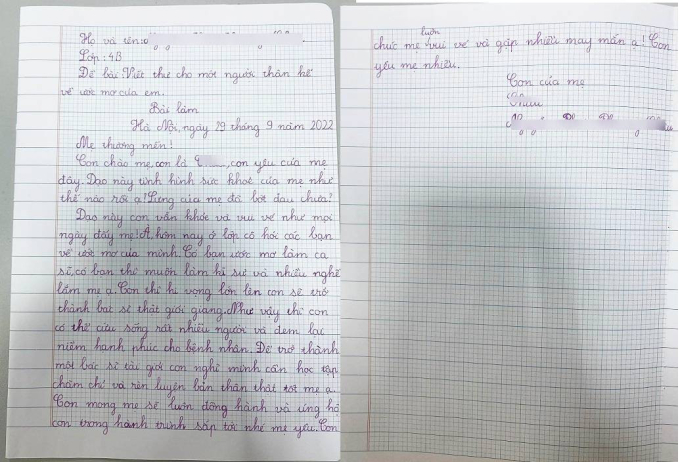 Họ và tên:
Lớp: 4B
Đề bài: Viết thư cho một người thân kể
về ước mơ của em.
Bài làm
Hà Nội, ngày 29 tháng 9 năm 2022
Mẹ thương mến!
Con chào mẹ, con là ,con yêu của mẹ
đây. Dạo này tình hình sức khoẻ của mẹ như
thế nào rồi ạ! Lưng của mẹ đã bớt đau chưa?
Dạo này con vẫn khỏe và vui vẻ như mọi
ngày đấy mẹ! À, hôm nay ở lớp cô hỏi các bạn
về ước mơ của mình. Có bạn ước mơ làm ca
sĩ, có bạn thì muốn làm kĩ sư và nhiều nghề
lắm mẹ ạ. Con thì hi vọng lớn lên con sẽ trở
thành bác sĩ thật giỏi giang. Như vậy thì con
có thể cứu sống rất nhiều người và đem lại
niềm hạnh phúc cho bệnh nhân. Để trở thành
một bác sĩ tài giỏi con nghĩ mình cần học tập
chăm chỉ và rèn luyện bản thân thật tốt mẹ ạ.
Con mong mẹ sẽ luôn đồng hành và ủng hộ
con trong hành trình sắp tới nhé mẹ yêu. Con
luôn
chúc mẹ vui vẻ và gặp nhiều may mắn ạ! Con
yêu mẹ nhiều.
Con của mẹ